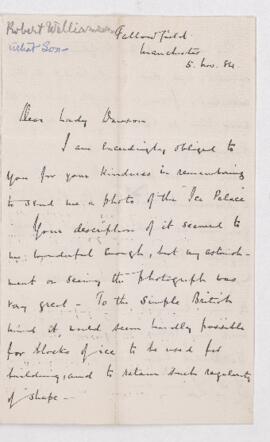 Robert Williamson
what Son
Fallowfield
Manchester
5. Nov. 84.
Dear Lady Dawson
I am exceedingly obliged to
you for your kindness in remembering
to send me a photo of the Ice Palace
Your description of it seemed to
me wonderful enough, but my astonish-
ment on seeing the photograph was
very great - To the simple British
mind it would seem hardly possible
for blocks of ice to be used for
building, and to retain such regularity
of shape -